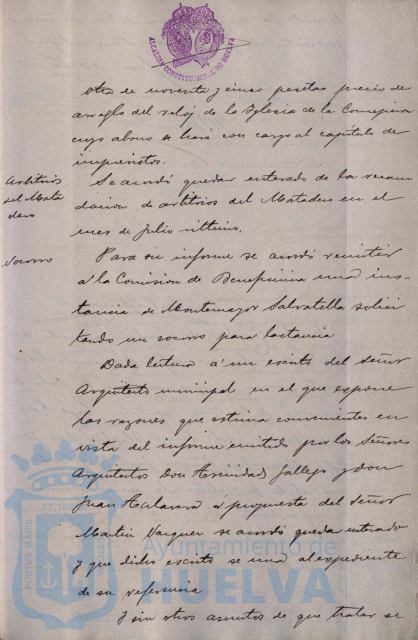 ALCALDIA CONSTITUCIONAL DE HUELVA
otra de noventa y cinco pesetas precio de
arreglo del reloj de la Iglesia de la Concepcion
cuyo abono se hará con cargo al capitulo de
imprevistos.
Arbitrios
del Mata
dero
Se acordó quedar enterado de la recau
dacion de arbitrios del Matadero en el
mes de Julio ultimo.
Socorro
Para su informe se acordó remitir
a la Comision de Beneficencia una ins
tancia de Montemayor Salvatella solici
tando un socorro para lactancia
Dada lectura á un escrito del Señor
Arquitecto municipal en el que expone
las razones que estima convenientes en
vista del informe emitido por los Señores
Arquitectos Don Trinidad Gallego y don
Juan á propuesta del Señor
Martin Vazquez se acordó queda enterado
y que dicho escrito se una al expediente
de su referencia
Y sin otros asuntos de que tratar se
Ayuntamiento de
HUELVA